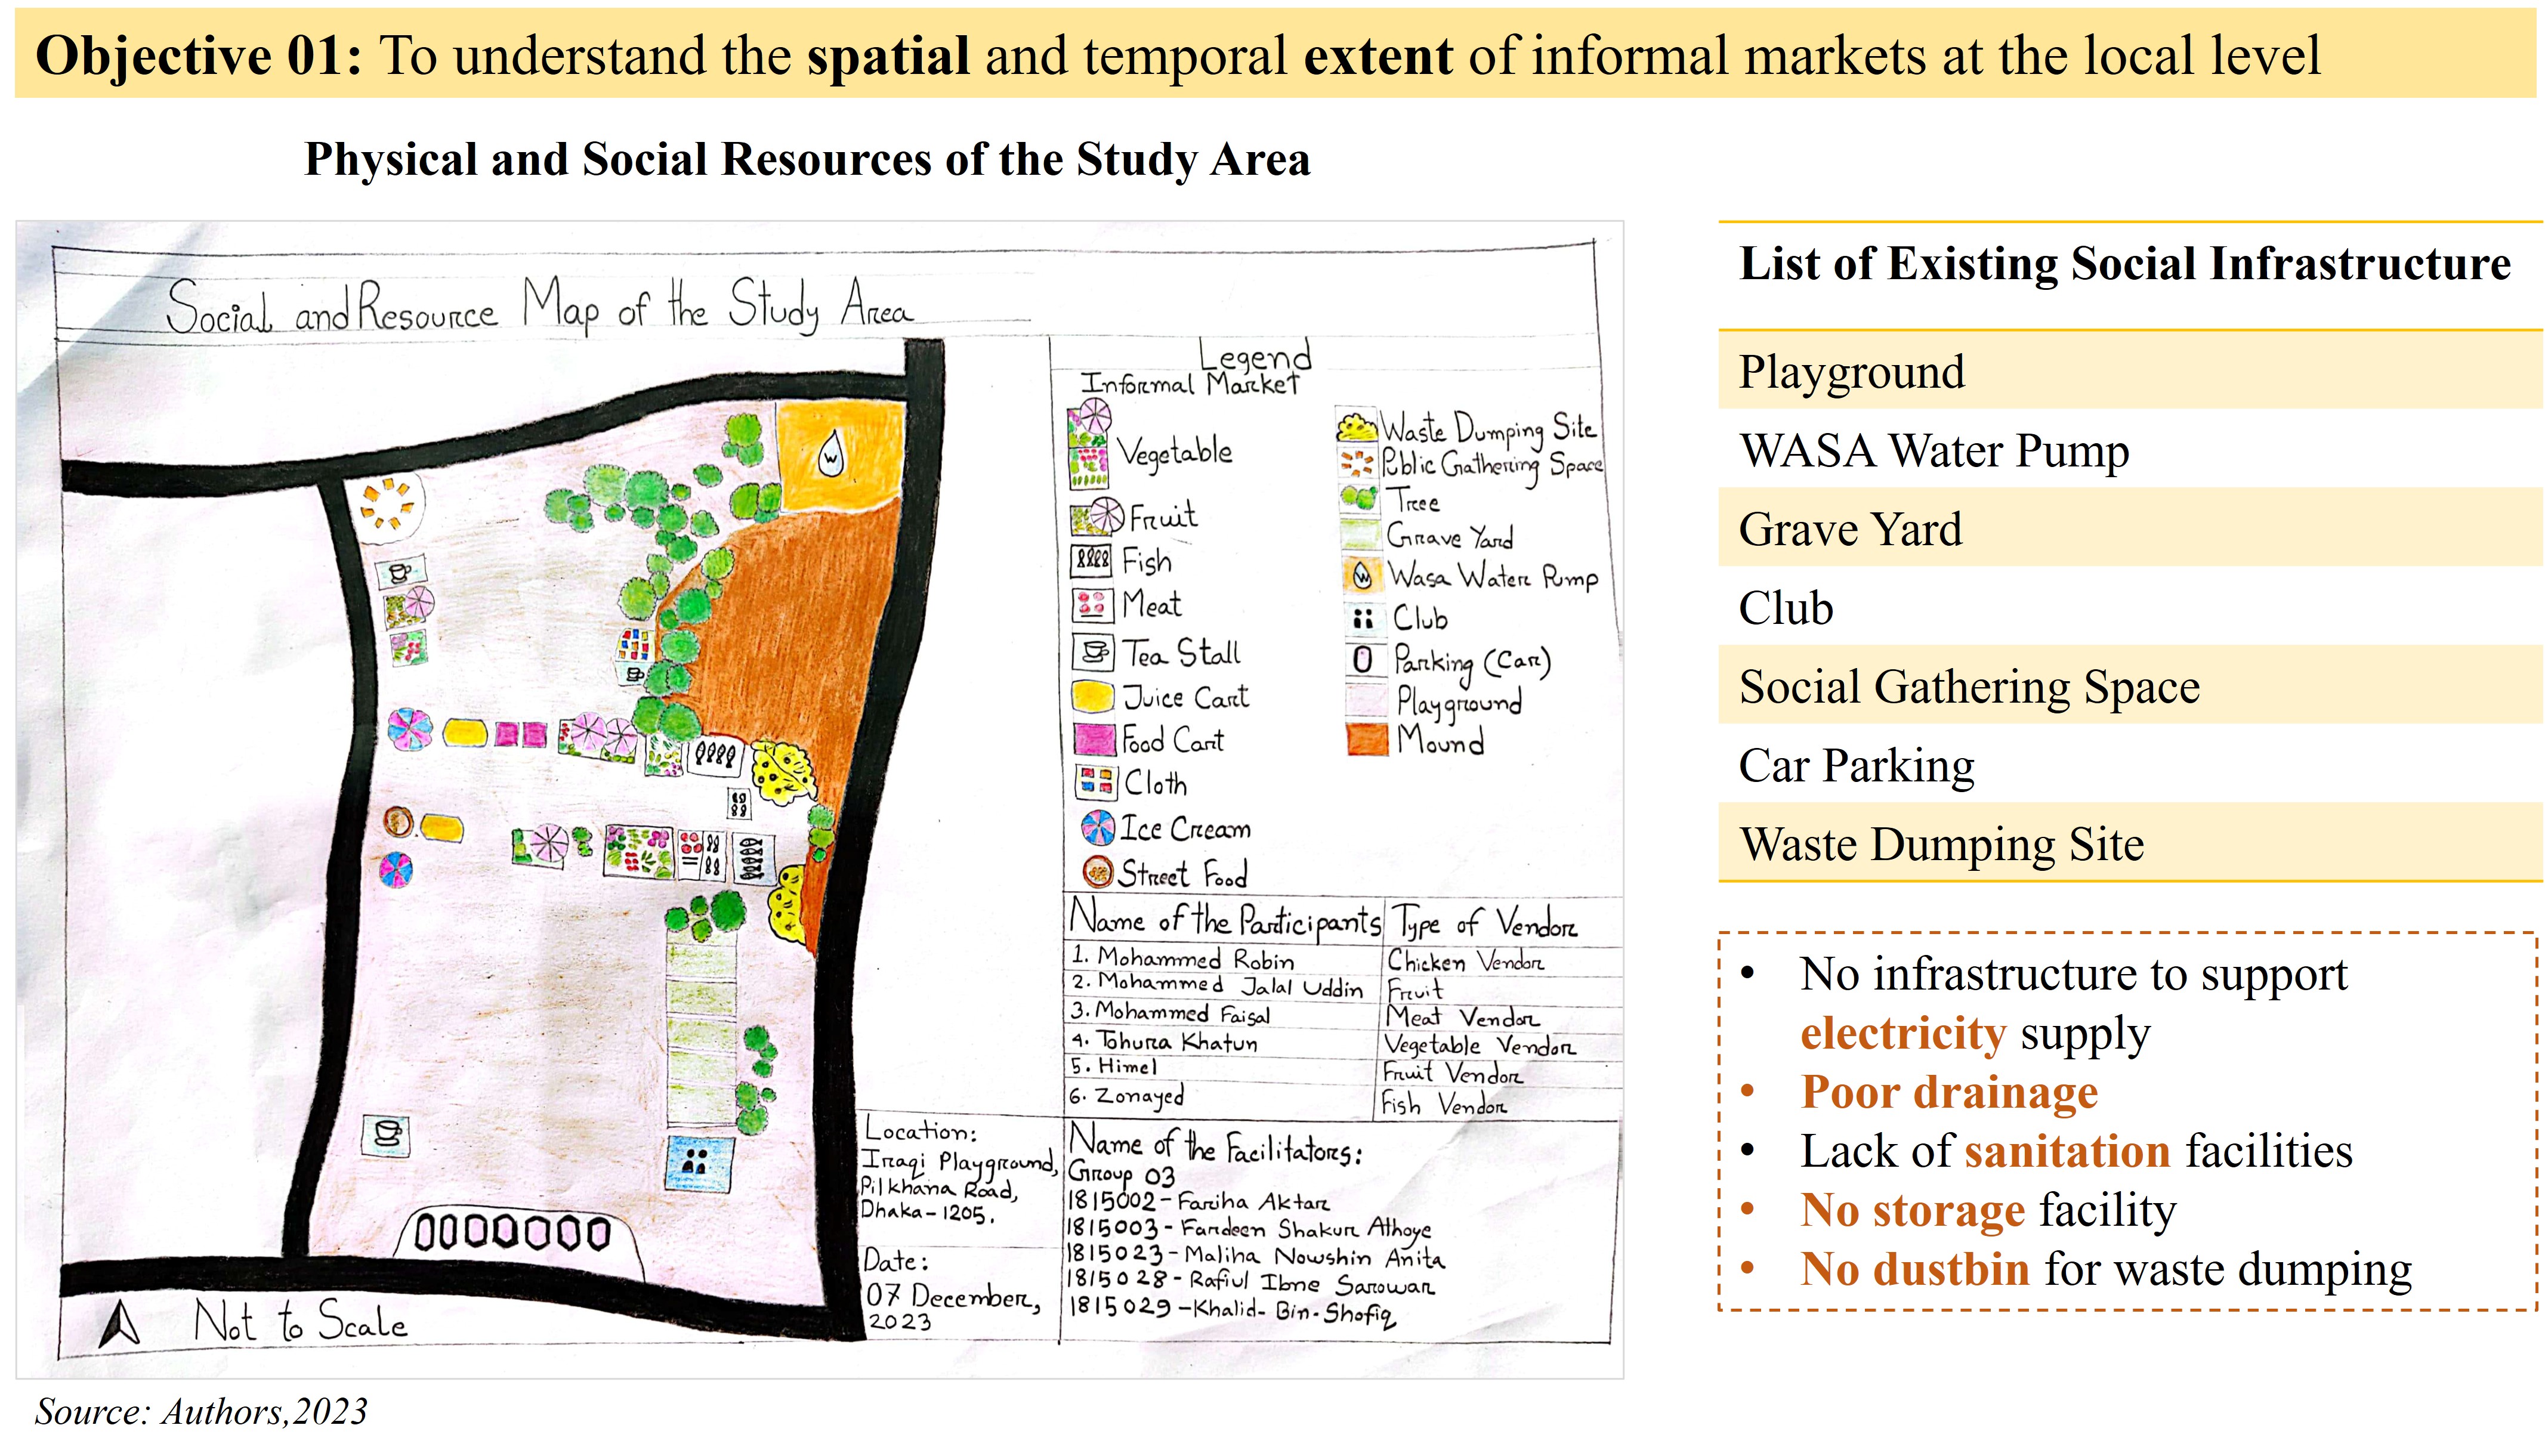 Objective 01: To understand the spatial and temporal extent of informal markets at the local level
Physical and Social Resources of the Study Area
Social and Resource Map of the Study Area
W
Not to Scale
Legend
Informal Market
Vegetable
Fruit
Fish
Meat
Tea Stall
Juice Cart
Food Cart
Cloth
Ice Cream
Street Food
Waste Dumping Site
Public Gathering Space
Tree
Grave Yard
W
Wasa Water Pump
Club
Parking (Car)
Playground
Mound
Name of the Participants Type of Vendor
1. Mohammed Robin Chicken Vendor
2. Mohammed Jalal Uddin Fruit
3. Mohammed Faisal Meat Vendor
4. Tohura Khatun Vegetable Vendor
5. Himel Fruit Vendor
6. Zonayed Fish Vendor
Location:
Iraqi Playground,
Pilkhana Road,
Dhaka-1205.
Date:
07 December,
2023
Name of the Facilitators:
Group 03
1815002 - Fariha Aktar
1815003 - Fardeen Shakur Athoye
1815023 - Maliha Nowshin Anita
1815028 - Rafiul Ibne Sarowar
1815029 - Khalid-Bin-Shofiq
Source: Authors,2023
List of Existing Social Infrastructure
Playground
WASA Water Pump
Grave Yard
Club
Social Gathering Space
Car Parking
Waste Dumping Site
• No infrastructure to support
electricity supply
• Poor drainage
• Lack of sanitation facilities
• No storage facility
• No dustbin for waste dumping